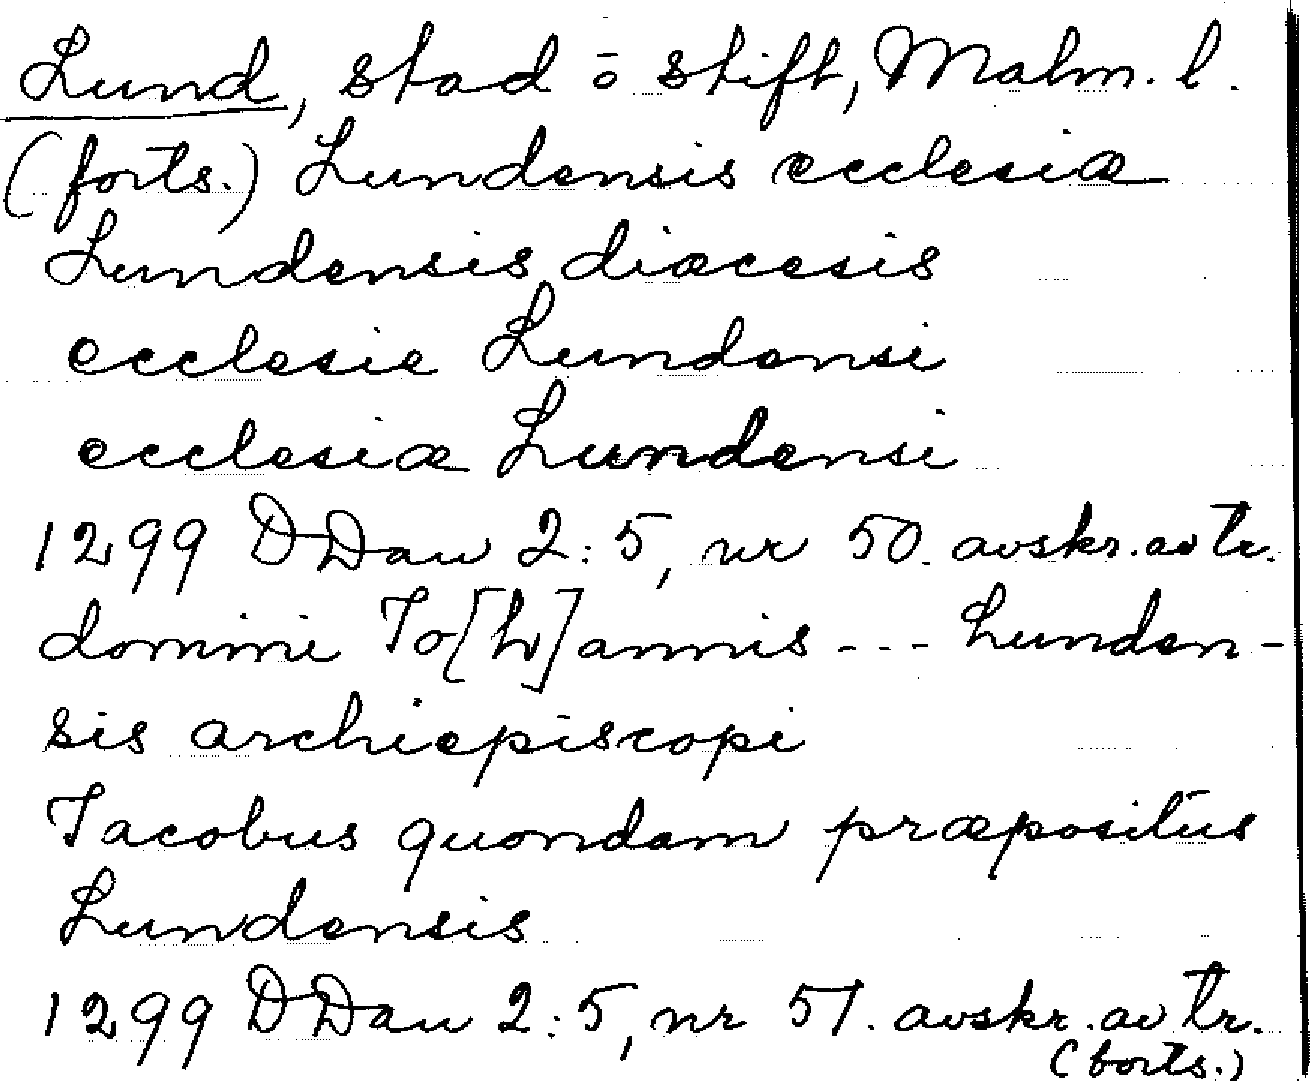 Lund, stad o stift, Malm. l.
(forts.) Lundensis ecclesiæ
Lundensis diæcesis
ecclesie Lundensi
ecclesiæ Lundensi
1299 DDan 2:5, nr 50. avskr. av tr.
domini Io[h]annis --- Lunden-
sis archiepiscopi
Iacobus quondam præpositus
Lundensis
1299 DDan 2:5, nr 51. avskr. av tr.
(forts.)